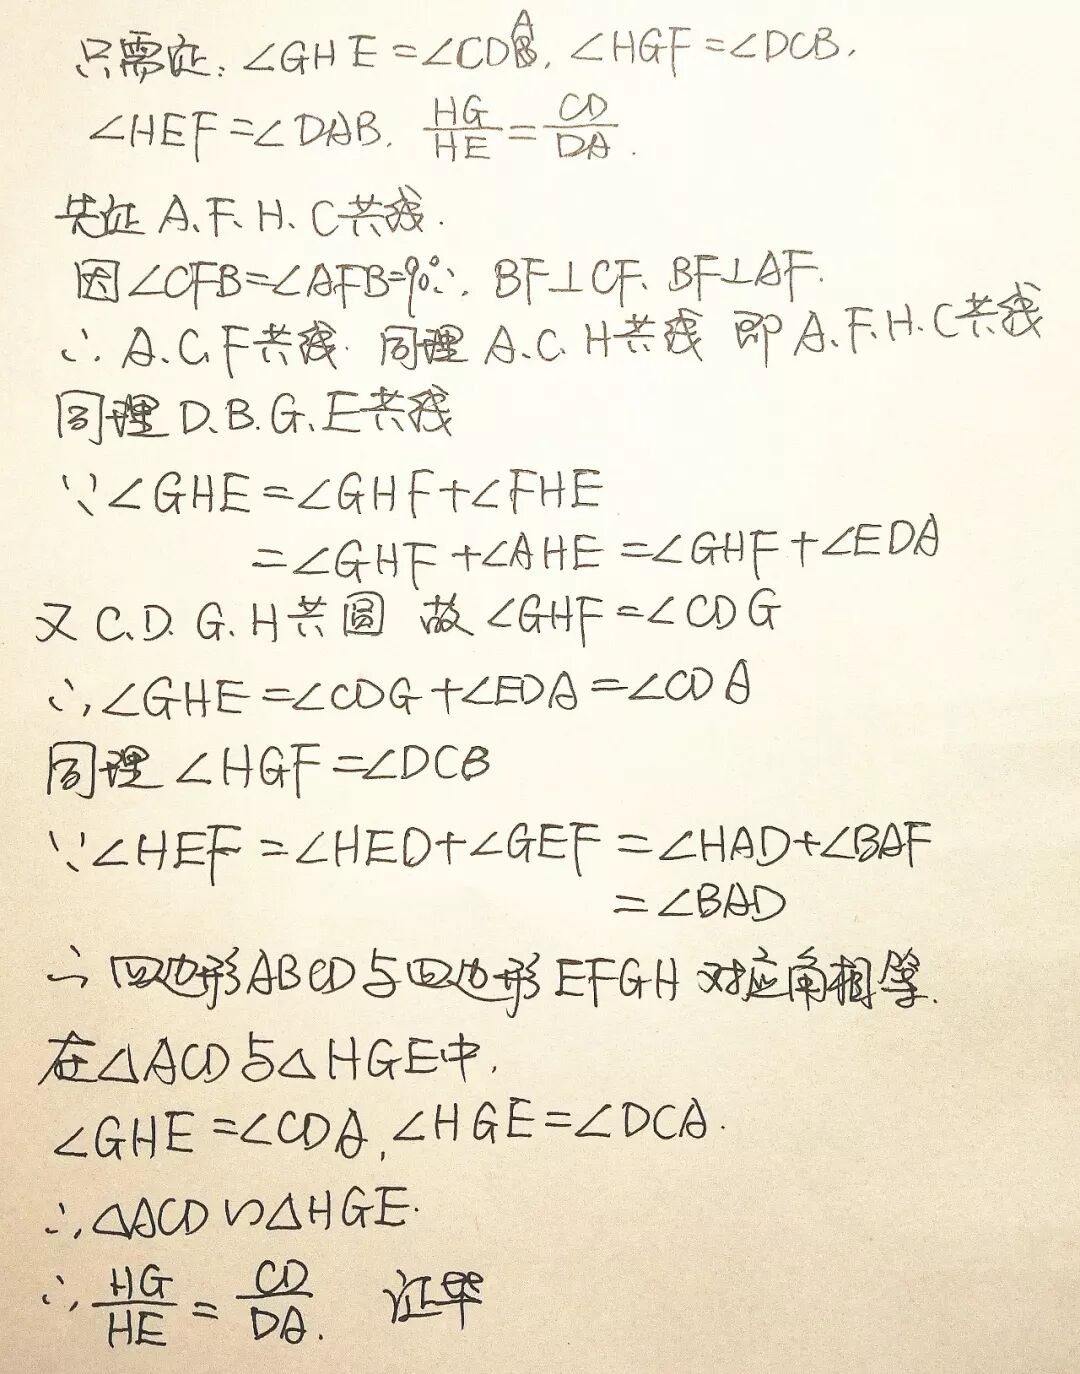 只需证：∠GHE=∠CDA，∠HGF=∠DCB，
∠HEF=∠DAB，HG/HE=CD/DA.
先证A、F、H、C共线.
因∠CFB=∠AFB=90° ∴BF⊥CF、BF⊥AF.
∴A、C、F共线. 同理A、C、H共线 即A、F、H、C共线
同理D、B、G、E共线
∵∠GHE=∠GHF+∠FHE
=∠GHF+∠AHE=∠GHF+∠EDA
又C、D、G、H共圆 故∠GHF=∠CDG
∴∠GHE=∠CDG+∠EDA=∠CDA
同理∠HGF=∠DCB
∵∠HEF=∠HED+∠GEF=∠HAD+∠BAF
=∠BAD
∴四边形ABCD与四边形EFGH对应角相等.
在△ACD与△HGE中，
∠GHE=∠CDA，∠HGE=∠DCA.
∴△ACD∽△HGE.
∴HG/HE=CD/DA. 证毕